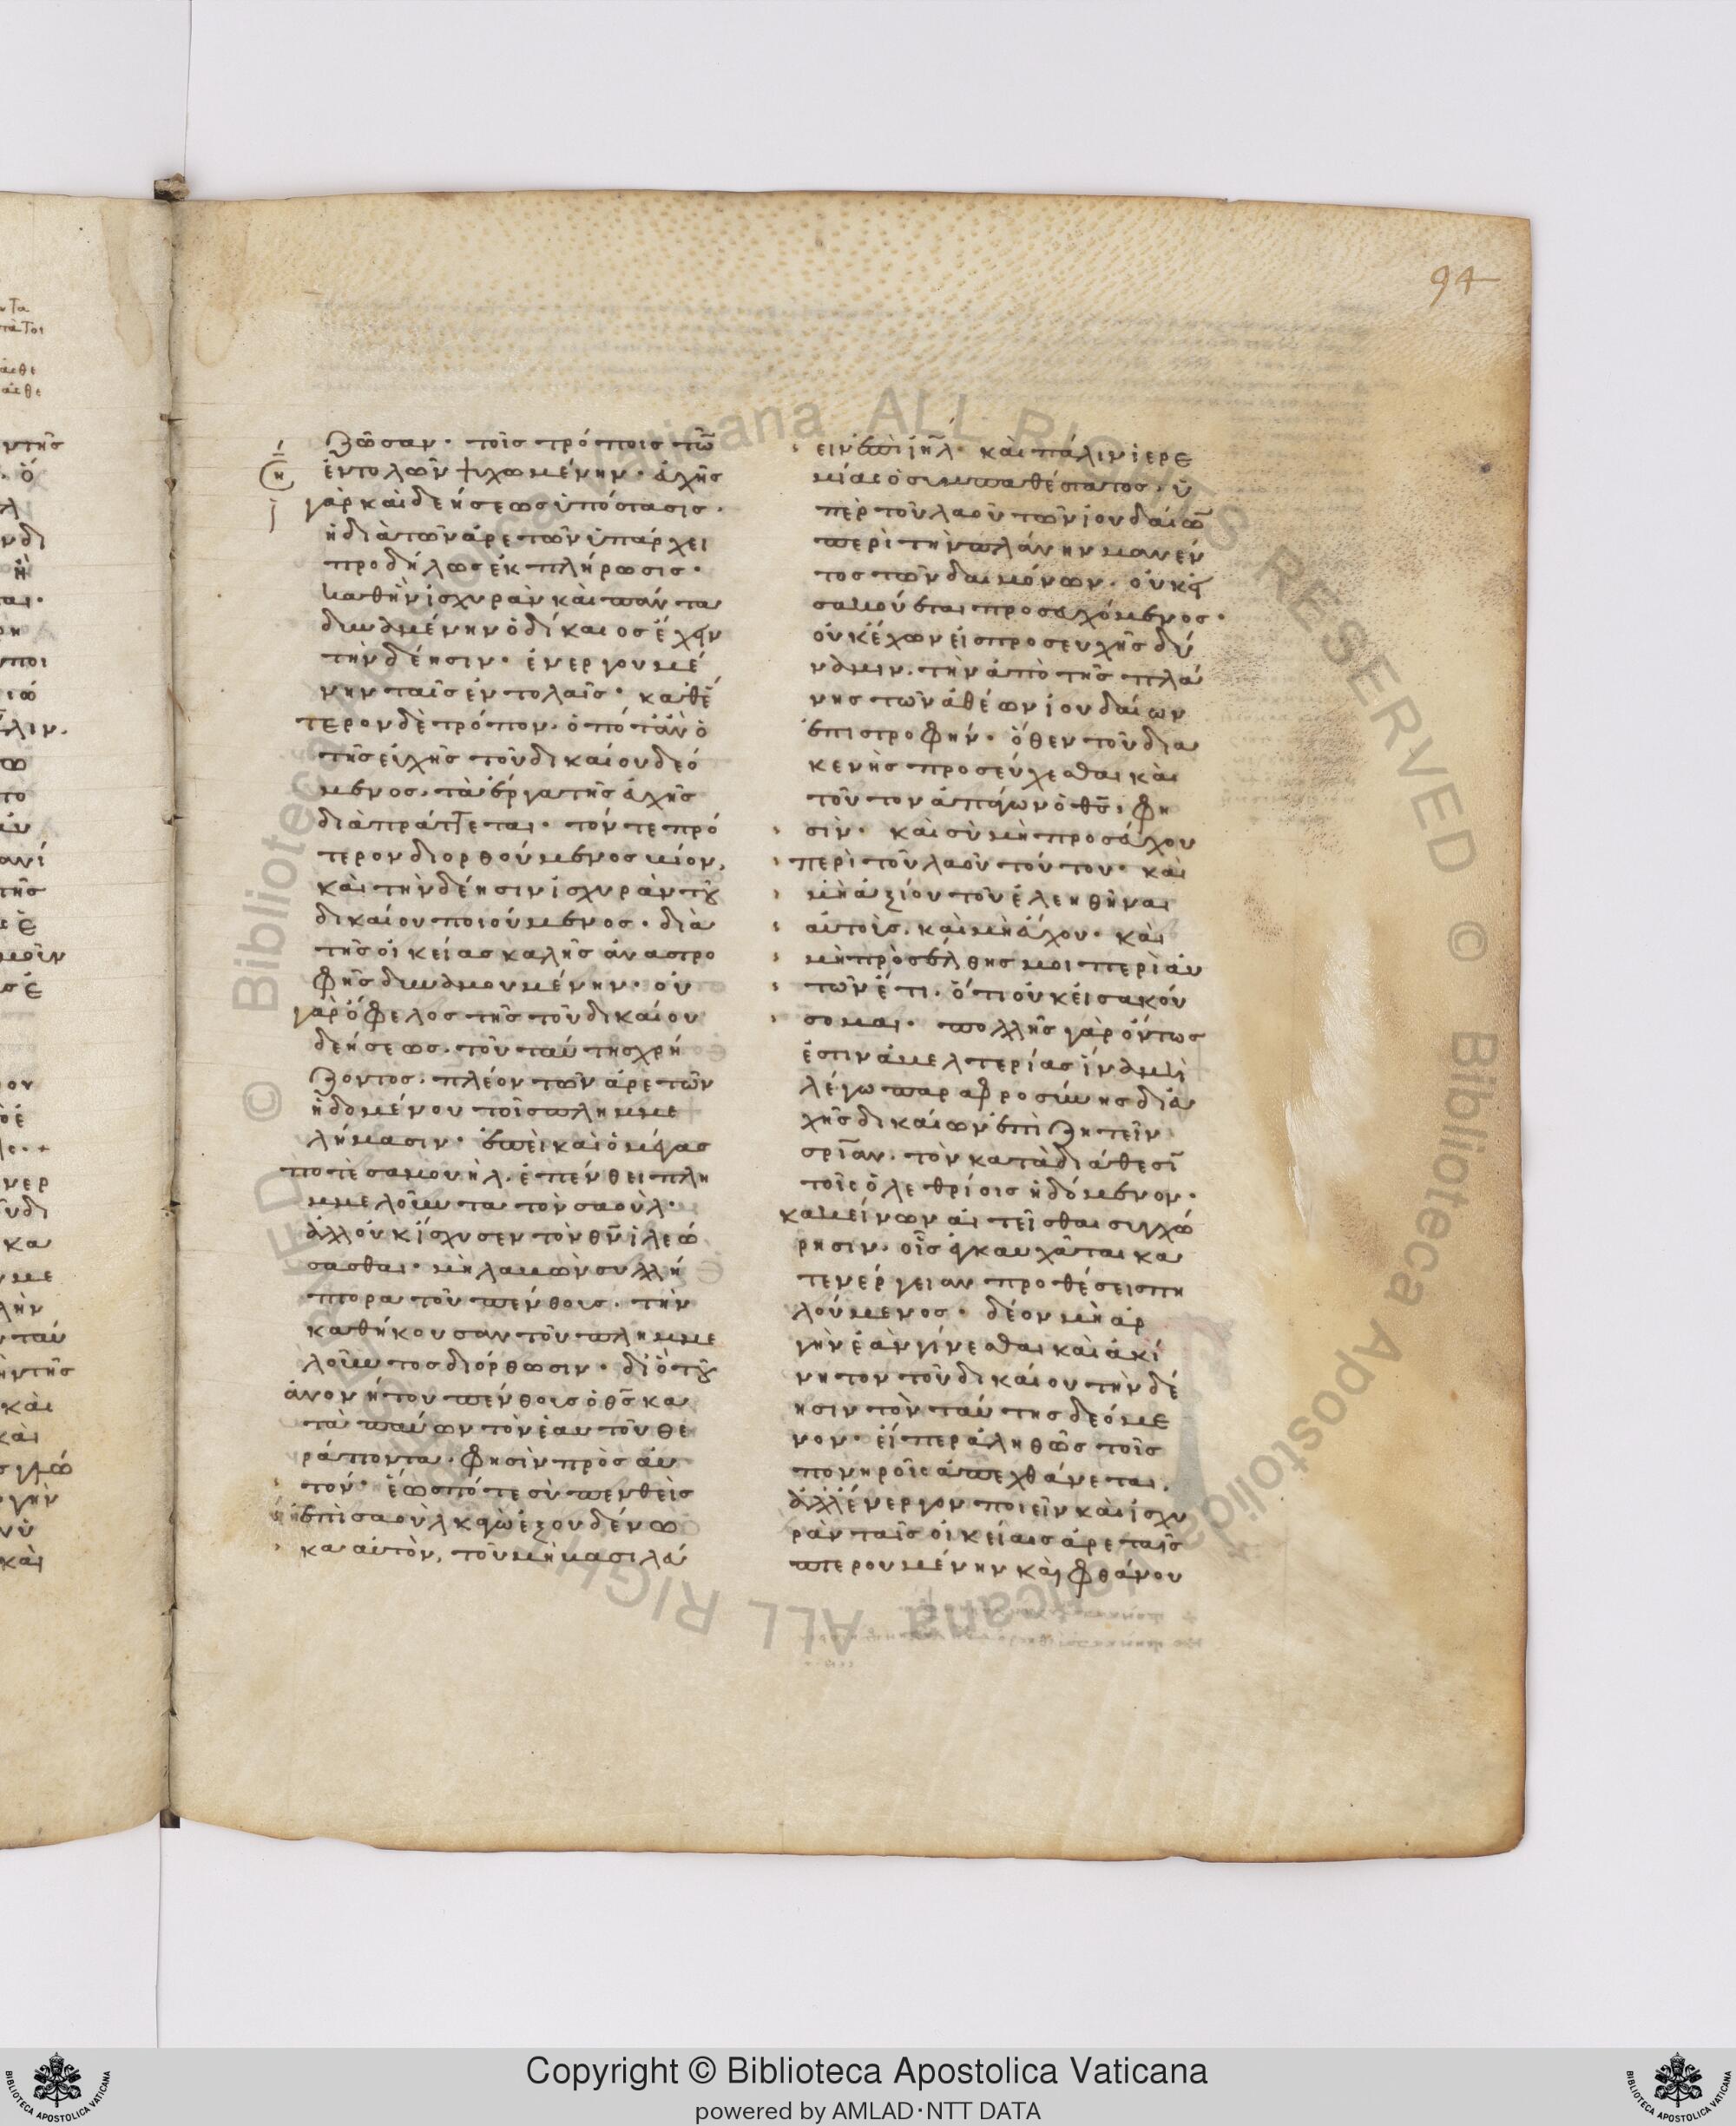 94
ζῶσαν· τοῖς τρόποις τῶ̅
ἐντολῶν ψυχωμένην· εὐχῆς
γὰρ καὶ δεήσεως ὑπόστασις·
ἡ διὰ τῶν ἀρετῶν ὑπάρχει
προδήλως ἐκπλήρωσις·
καθ ἣν ἰσχυρὰν καὶ πάντα
δυναμένην ὁ δίκαιος ἔχει
τὴν δέησιν· ἐνεργουμέ
νην ταῖς ἐντολαῖς· καθ ἕ
τερον δὲ τρόπον· ὁπόταν ὁ
τῆς εὐχῆς τοῦ δικαίου δεό
μενος, τὰ ἔργα τῆς εὐχῆς
διαπράττεται· τόν τε πρό
τερον διορθούμενος βίον,
καὶ τὴν δέησιν ἰσχυρὰν τοῦ
δικαίου ποιούμενος· διὰ
τῆς οἰκείας καλῆς ἀναστρο
φῆς δυναμουμένην· οὐ
γὰρ ὄφελος τῆς τοῦ δικαίου
δεήσεως, τοῦ ταύτης χρή
ζοντος, πλέον τῶν ἀρετῶν
ἡδομένου τοῖς πλημμε
λήμασιν· ἐπεὶ καὶ ὁ μέγας
ποτὲ σαμουὴλ, ἐπένθει πλη
μμελοῦντα τὸν σαοὺλ·
ἀλλ οὐκ ἴσχυσεν τὸν θ̅ν̅ ἱλεώ
σασθαι· μὴ λαβὼν συλλή
πτορα τοῦ πένθους, τὴν
καθήκουσαν τοῦ πλημμε
λοῦντος διόρθωσιν· διὸ τοῦ
ἀνονήτου πένθους ὁ θ̅ς̅ κα
ταπαύων τὸν ἑαυτοῦ θε
ράποντα, φησὶν πρὸς αὐ
τόν· ἕως πότε σὺ πενθεῖς
ἐπὶ σαοὺλ κἀγὼ ἐξουδένω
κα αὐτὸν, τοῦ μὴ βασιλεύ
ειν ἐπὶ ι̅η̅λ̅· καὶ πάλιν ἱερε
μίας ὁ συμπαθέστατος, ὑ
πὲρ τοῦ λαοῦ τῶν ἰουδαίω̅
περὶ τὴν πλάνην μανέν
τος τῶν δαιμόνων, οὐκ εἰ
σακούεται προσευχόμενος·
οὐκ ἔχων εἰς προσευχῆς δύ
ναμιν, τὴν ἀπὸ τῆς πλά
νης τῶν ἀθέων ἰουδαίων
ἐπιστροφήν· ὅθεν τοῦ δια
κενῆς προσεύχεσθαι καὶ
τοῦτον ἀπάγων ὁ θ̅ς̅, φη
σὶν· καὶ σὺ μὴ προσεύχου
περὶ τοῦ λαοῦ τούτου· καὶ
μὴ ἀξίου τοῦ ἐλεηθῆναι
αὐτοὺς, καὶ μὴ εὔχου· καὶ
μὴ προσέλθῃς μοι περὶ αὐ
τῶν ἔτι, ὅτι οὐκ εἰσακού
σομαι· πολλῆς γὰρ ὄντως
ἐστιν ἀμελτερίας ἵνα μὴ
λέγω παραφροσύνης δι εὐ
χῆς δικαίων ἐπιζητεῖν
σ̅ρ̅ίαν, τὸν κατὰ διάθεσι̅
τοῖς ὀλεθρίοις ἡδόμενον·
κἀκείνων αἰτεῖσθαι συγχώ
ρησιν, οἷς ἐγκαυχᾶται κα
τενέργειαν προθέσει σπι
λούμενος· δέον μὴ ἀρ
γὴν ἐᾶν γίνεσθαι καὶ ἀκί
νητον τοῦ δικαίου τὴν δέ
ησιν τὸν ταύτης δεόμε
νον· εἴπερ ἀληθῶς τοῖς
πονηροῖς ἀπεχθάνεται,
ἀλλ ἐνεργὸν ποιεῖν καὶ ἰσχυ
ρὰν ταῖς οἰκείαις ἀρεταῖς
πτερουμένην καὶ φθάνου
Copyright © Biblioteca Apostolica Vaticana
powered by AMLAD·NTT DATA